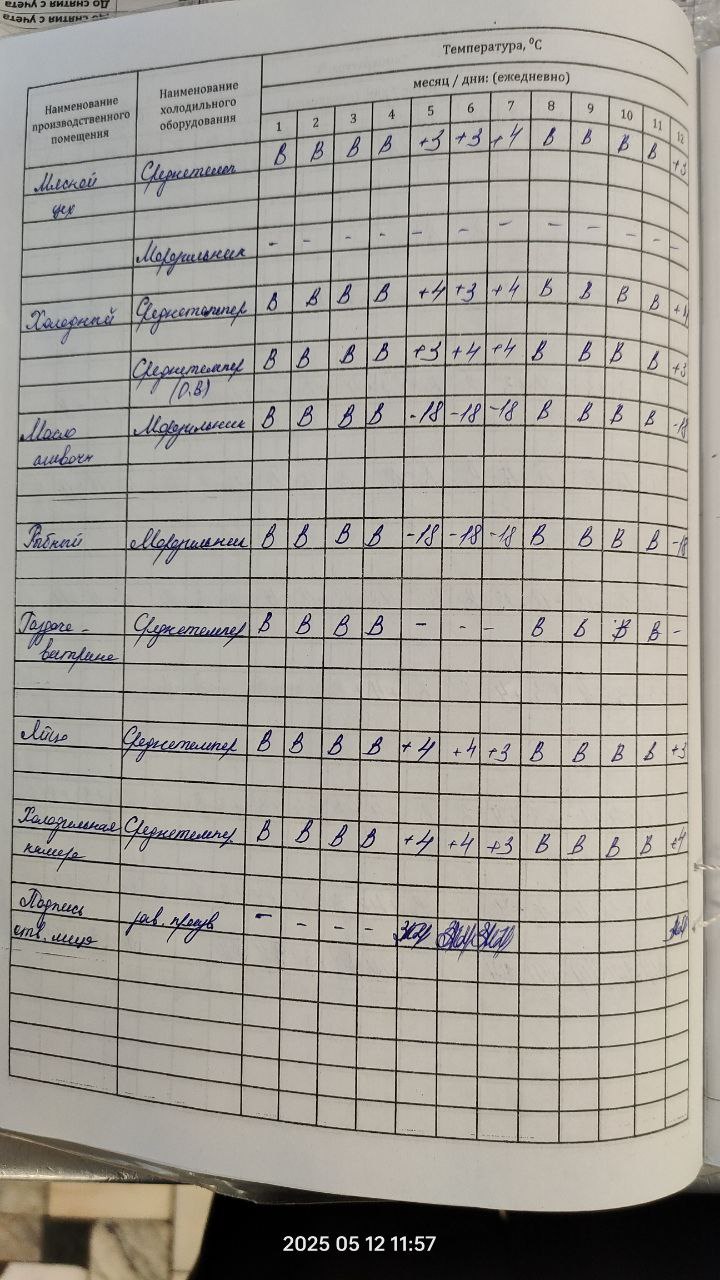 До снятия с учета
До снятия с учета
Температура, ⁰С
Наименование производственного помещения
Наименование холодильного оборудования
месяц / дни: (ежедневно)
1 2 3 4 5 6 7 8 9 10 11 12
Мясной Среднетемп В В В В +3 +3 +4 В В В В +3
цех
Морозильник - - - - - - - - - - - -
Холодный Среднетемпер В В В В +4 +3 +4 В В В В
Среднетемпер В В В В +3 +4 +4 В В В В +3
(О.В)
Масло Морозильник В В В В -18 -18 -18 В В В В -18
сливочн
Рыбный Морозильник В В В В -18 -18 -18 В В В В -18
Раздаче- Среднетемпер В В В В - - - В В В В -
витрине
Яйцо Среднетемпер В В В В +4 +4 +3 В В В В +3
Холодильная Среднетемпер. В В В В +4 +4 +3 В В В В +4
камера
Подпись зав. произв - - - -
отв. лица
2025 05 12 11:57